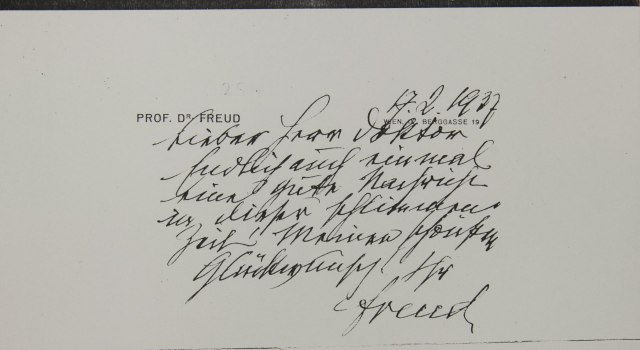 17. 2. 1937
PROF. DR. FREUD WIEN, IX., BERGGASSE 19
Lieber Herr Doktor
Endlich auch einmal
eine gute Nachricht
in dieser schlimmen
Zeit! Meinen schönsten
Glückwunsch. Ihr
Freud